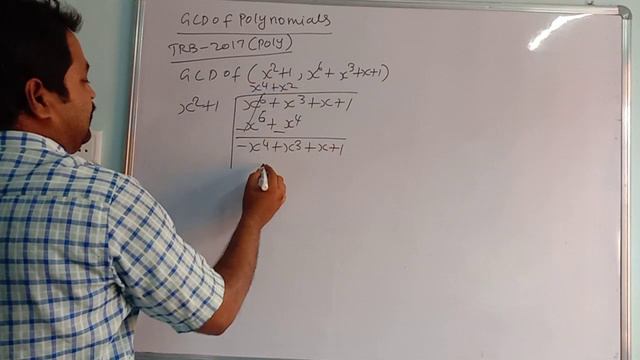 GCD of Polynomials
TRB-2017 (Poly)
GCD of (x²+1, x⁶+x³+x+1)
x⁴+x²
x²+1 x⁶+x³+x+1
x⁶+x⁴
-x⁴+x³+x+1